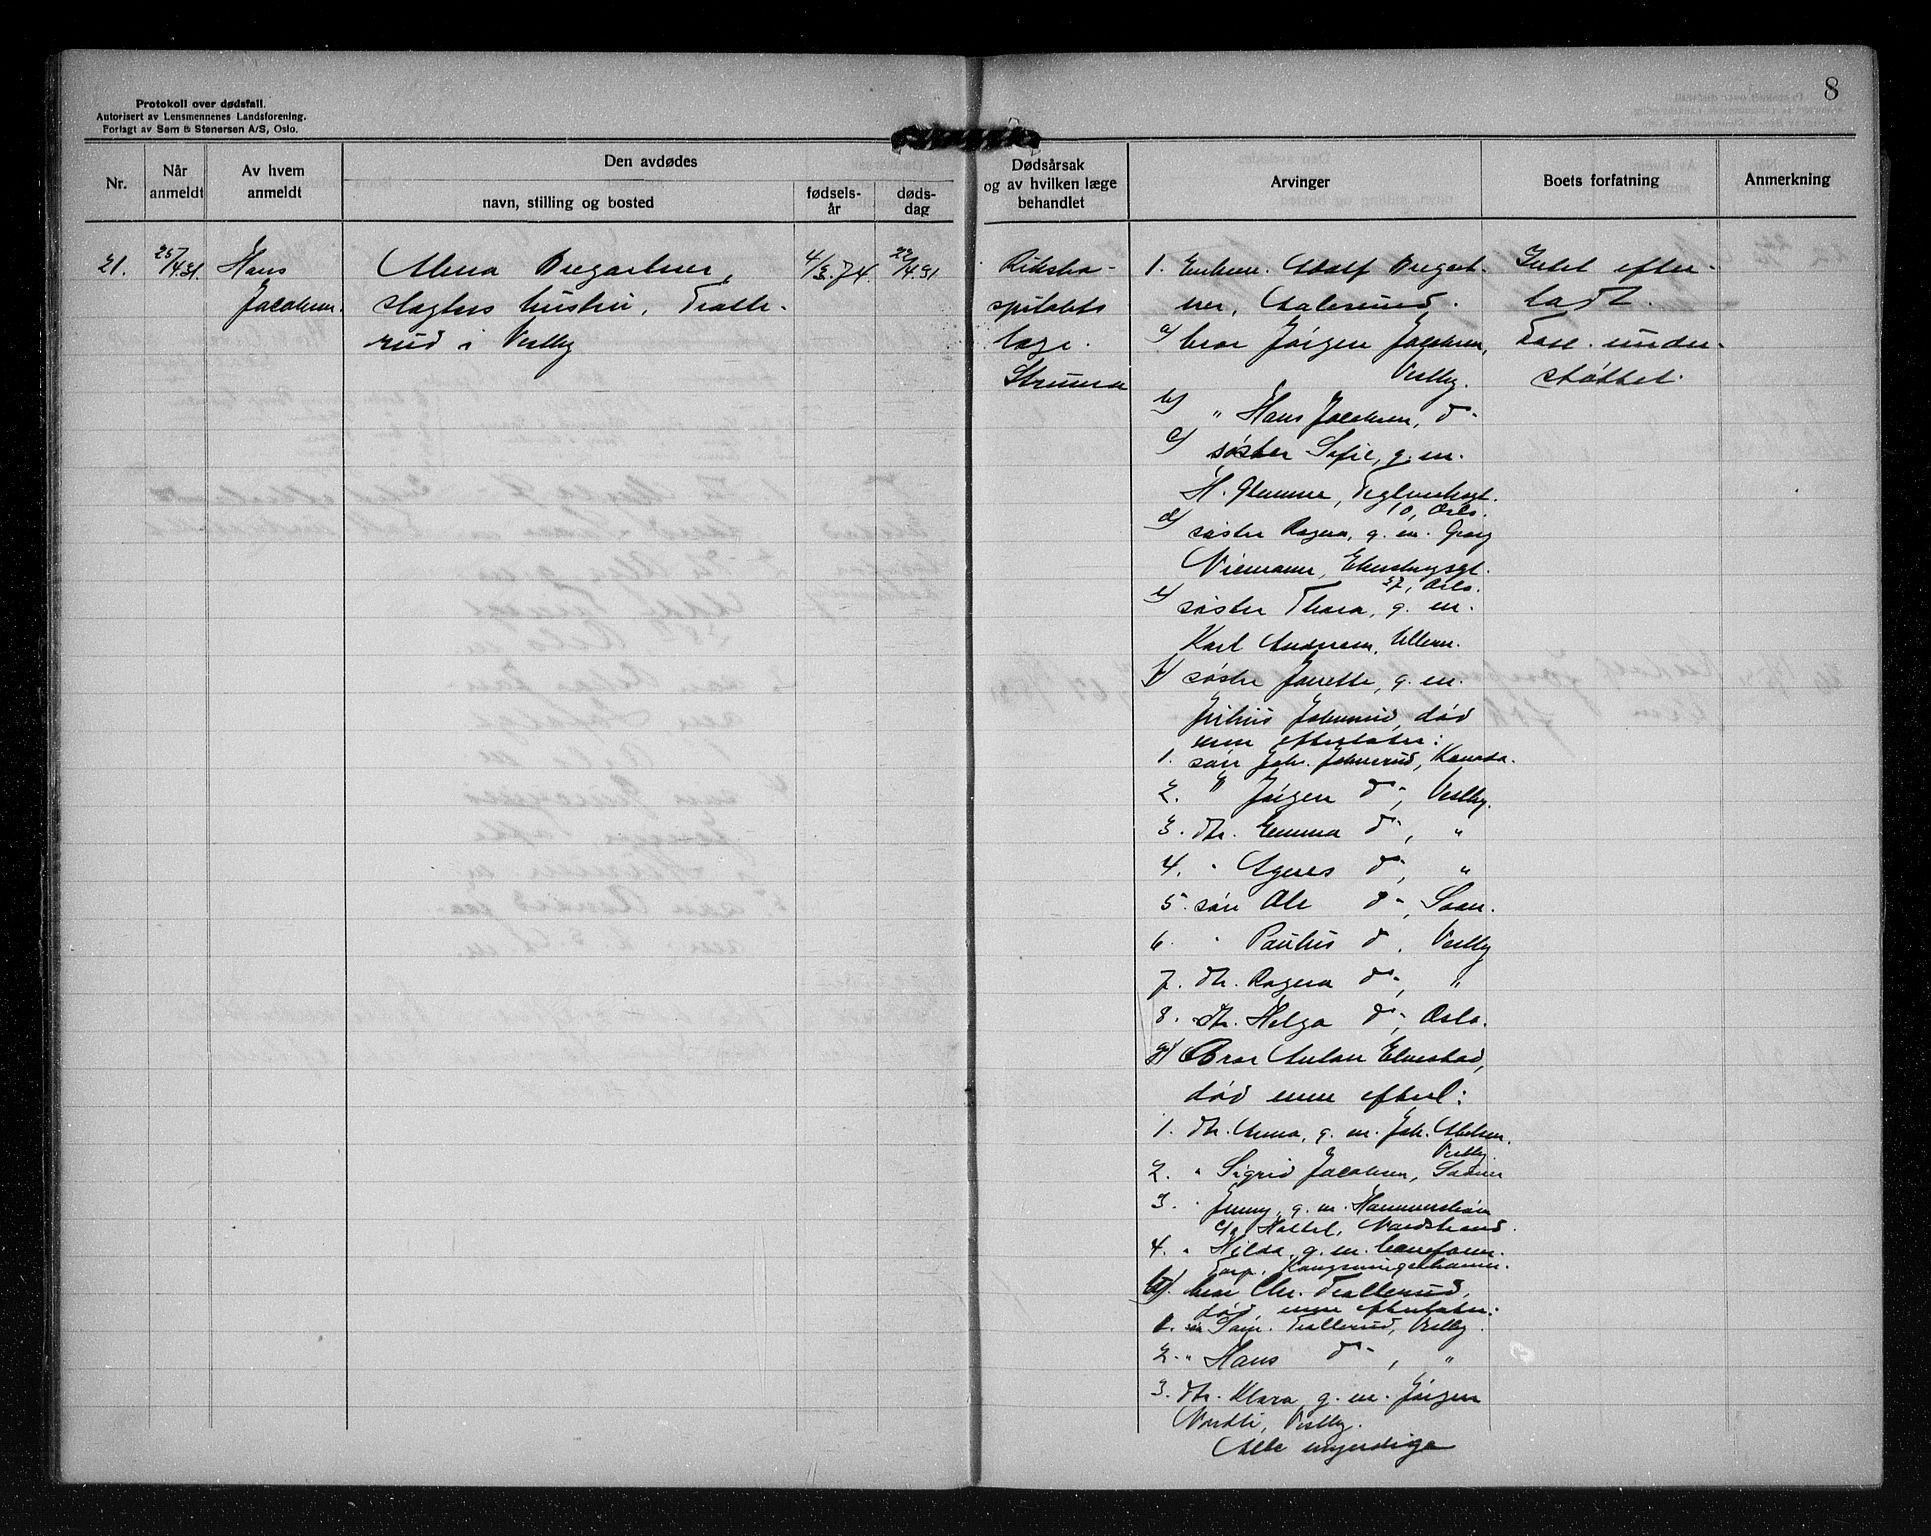 8
Protokoll over dødsfall.
Autorisert av Lensmennenes Landsforening.
Forlagt av Sem & Stenersen A/S, Oslo.
Nr.
Når anmeldt
Av hvem anmeldt
Den avdødes
navn, stilling og bosted
fødsels-
år
døds-
dag
Dødsårsak
og av hvilken læge
behandlet
Arvinger
Boets forfatning
Anmerkning
21.
25/4.31.
Hans
Jacobsen.
Alma Bregartner,
slagters hustru, Tralle-
rud i Vestby
4/3.74.
22/4.31
Riksho-
spitalets
læge.
Struma
1. Enkem. Adolf Bregart-
ner,
a) bror Jørgen Jacobsen,
Vestby.
b) " Hans Jacobsen, d-
c) søster Sofie, g. m.
H. Teglverksgt.
10, Oslo.
d) søster Ragna, g. m. Georg
Niemann, Ekebergsgt.
37, Oslo.
e) søster Thora, g. m.
Karl Andersen, Ullern.
f) søster Janette, g. m.
Julius Johnsrud, død
men efterlater:
1. søn Joh. Johnsrud, Kanada.
2. " Jørgen d-, Vestby.
3. dtr. Emma d-, "
4. " Agnes d-, "
5. søn Ole d-, Soon.
6. " Paulus d-, Vestby
7. dtr. Ragna d-, "
8. dtr. Helga d-, Oslo.
g) Bror Anton Elvestad,
død men efterl:
1. dtr. Anna, g. m. Joh. Abelsen.
Vestby.
2. " Sigrid Jacobsen,
3. " Jenny, g. m. Hammerstrøm
c/o Holtet, Nordstrand.
4. " Hilda, g. m. baneform.
Torp, Kongsvingerbanen.
h) bror Chr. Trallerud,
død, men efterlater:
1. søn Sam. Trallerud, Vestby.
2. " Hans d-, "
3. dtr. Klara g. m. Jørgen
Nordli, Vestby.
Alle myndige
Intet efter-
ladt.
Fase. under-
støttet.